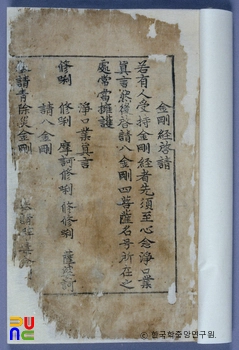 金剛經啓請
若有人受持金剛經者先須至心念淨口業
眞言然後啓請八金剛四菩薩名号所在之
處常當擁護
淨口業眞言
修唎 修唎 摩訶修唎 修修唎 薩婆訶
請八金剛
請青除災金剛
한국학중앙연구원